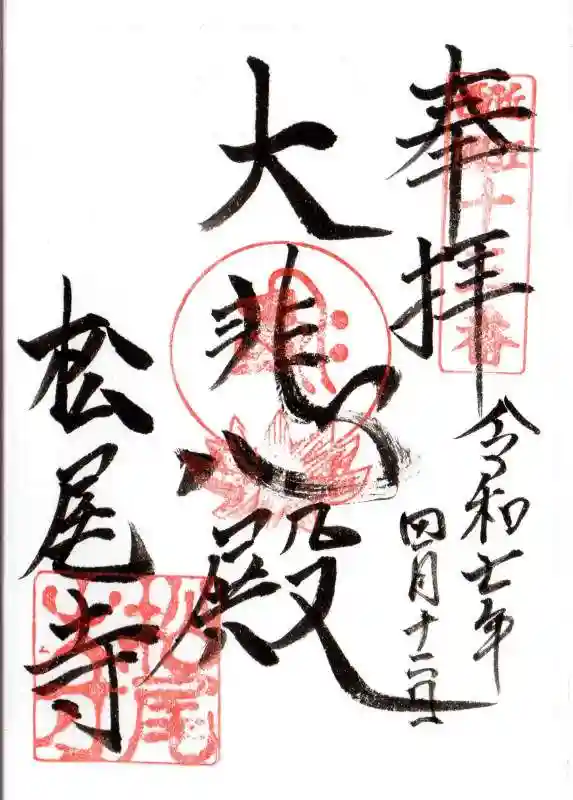 奉拝
令和七年
四月十二日
大悲殿
松尾寺
松尾